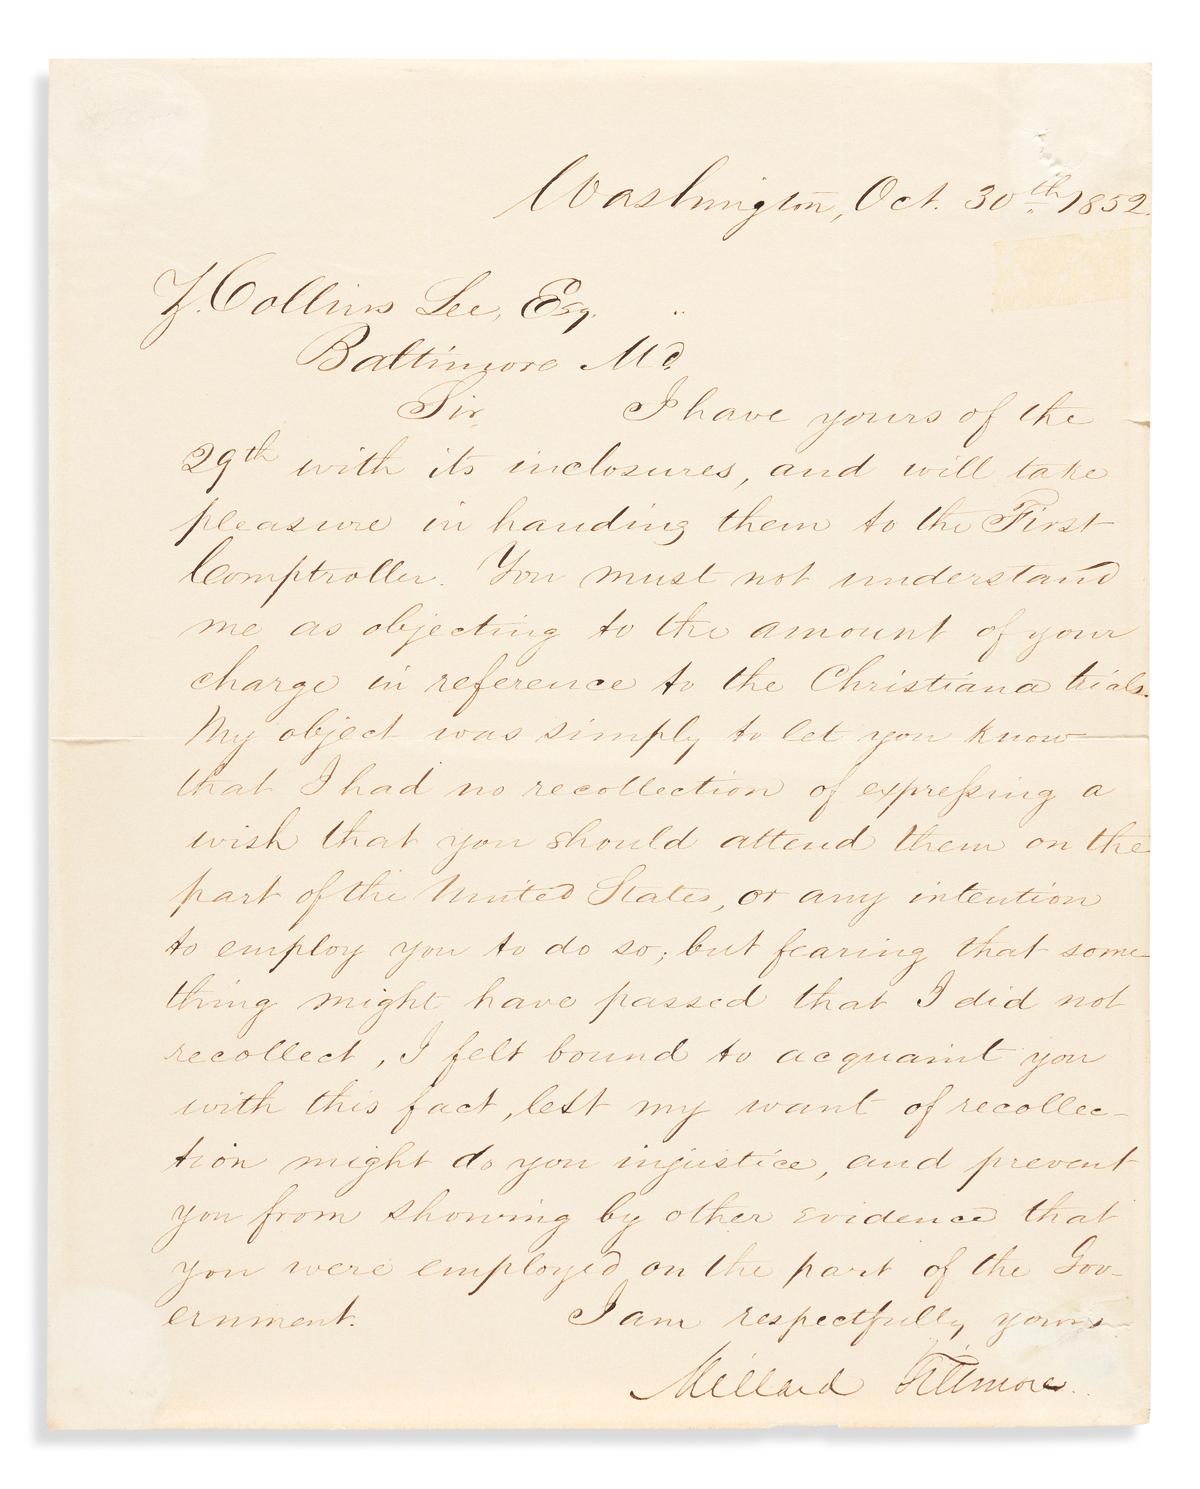 Washington, Oct. 30th 1852.
Z. Collins Lee, Esq.
Baltimore Md
Sir, I have yours of the
29th with its inclosures, and will take
pleasure in handing them to the First
Comptroller. You must not understand
me as objecting to the amount of your
charge in reference to the Christiana trials.
My object was simply to let you know
that I had no recollection of expressing a
wish that you should attend them on the
part of the United States, or any intention
to employ you to do so; but fearing that some
thing might have passed that I did not
recollect, I felt bound to acquaint you
with this fact, lest my want of recollec-
tion might do you injustice, and prevent
you from showing by other evidence that
you were employed on the part of the Gov-
ernment. I am respectfully yours
Millard Fillmore.